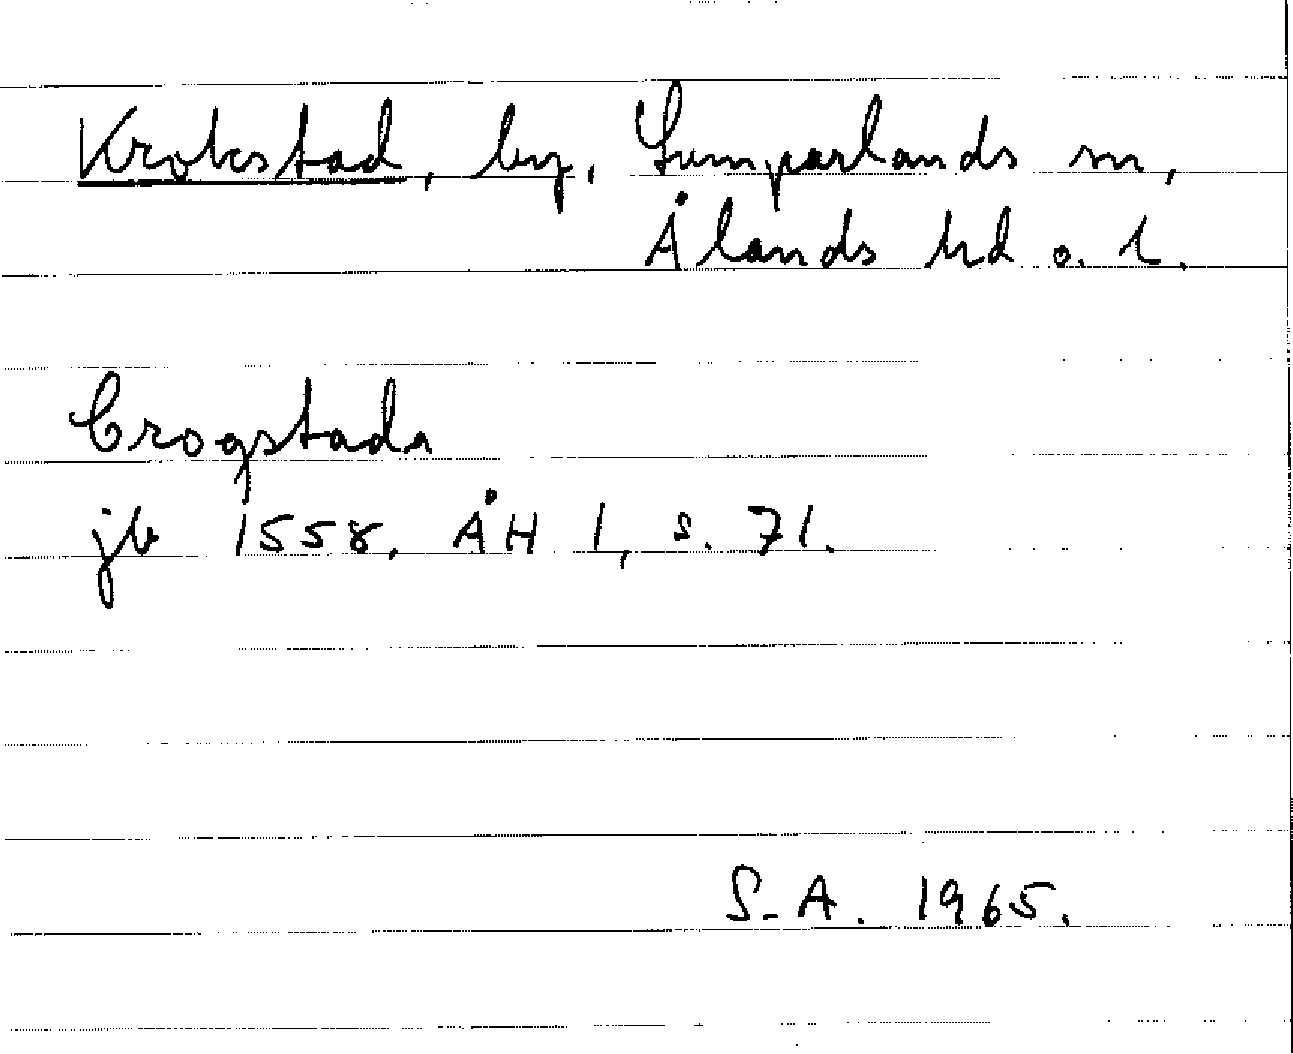 Krokstad, by, Lumparlands sn,
Ålands hd o. l.
Crogstada
jb 1558, ÅH 1, s. 71.
S-A. 1965.